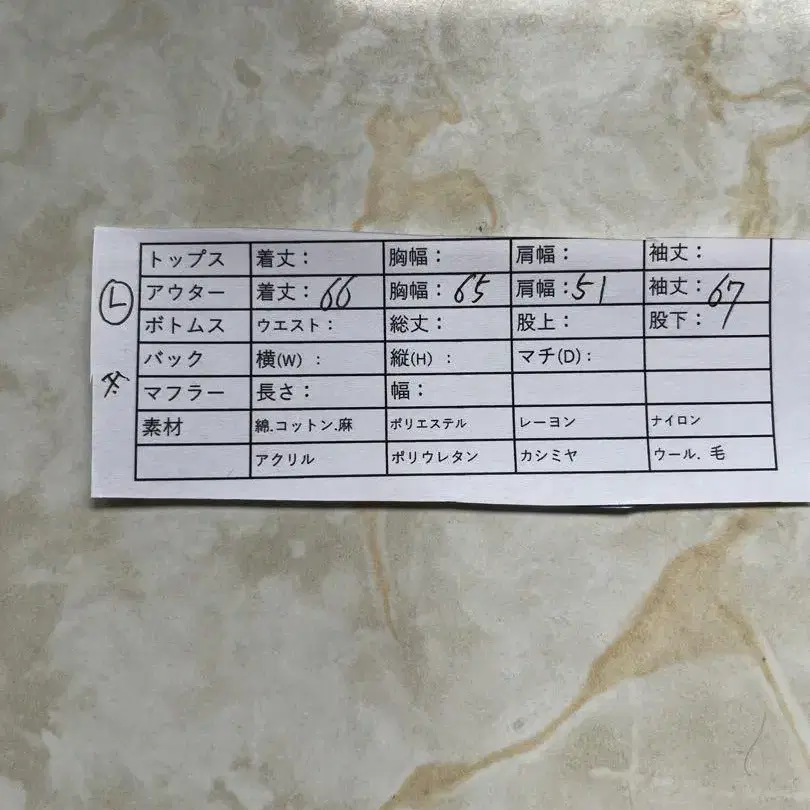 トップス 着丈： 胸幅： 肩幅： 袖丈：
L アウター 着丈：66 胸幅：65 肩幅：51 袖丈：67
ボトムス ウエスト： 総丈： 股上： 股下：
バック 横(W) ： 縦(H) ： マチ(D)：
マフラー 長さ： 幅：
素材 綿.コットン.麻 ポリエステル レーヨン ナイロン
アクリル ポリウレタン カシミヤ ウール. 毛